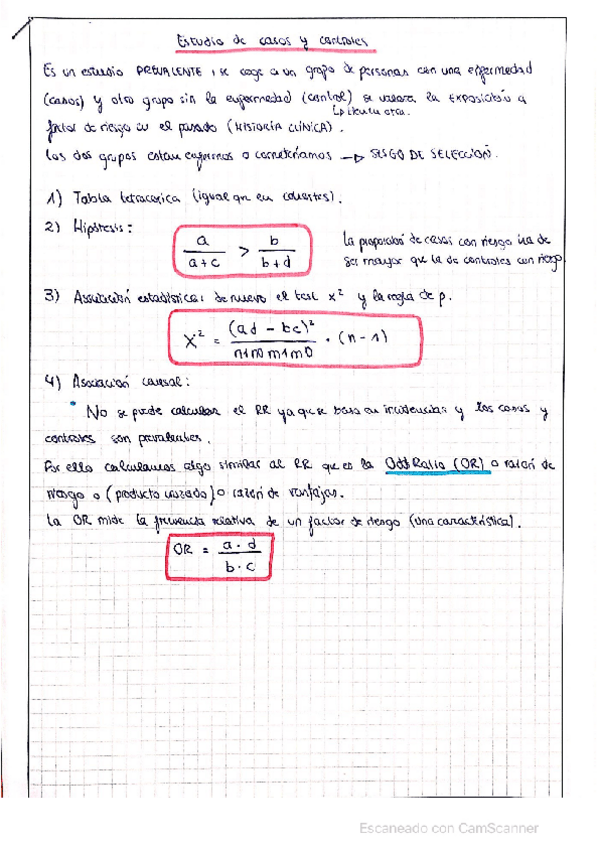 Estudio de casos y controles
Es un estudio PREVALENTE, se coge a un grupo de personas con una enfermedad
(casos) y otro grupo sin la enfermedad (control) se valora la EXPOSICIÓN a
factor de riesgo en el pasado (HISTORIA CLÍNICA).
Los dos grupos estan enfermos o → SESGO DE SELECCIÓN.
1) Tabla tetracorica (igual que en cohortes).
2) Hipótesis:
a / a+c > b / b+d
La proporción de casos con riesgo ha de
ser mayor que la de controles con riesgo
3) Asociación estadística: de nuevo el test x² y la regla de p.
X² = (ad - bc)² / n1n0m1m0 · (n-1)
4) Asociación causal:
• No se puede calcular el RR ya que se basa en incidencias y los casos y
controles son prevalentes.
Por ello calculamos algo similar al RR que es la Odd Ratio (OR) o razón de
riesgo o (producto cruzado) o razón de ventajas.
La OR mide la frecuencia relativa de un factor de riesgo (una característica).
OR = a · d / b · c
Escaneado con CamScanner